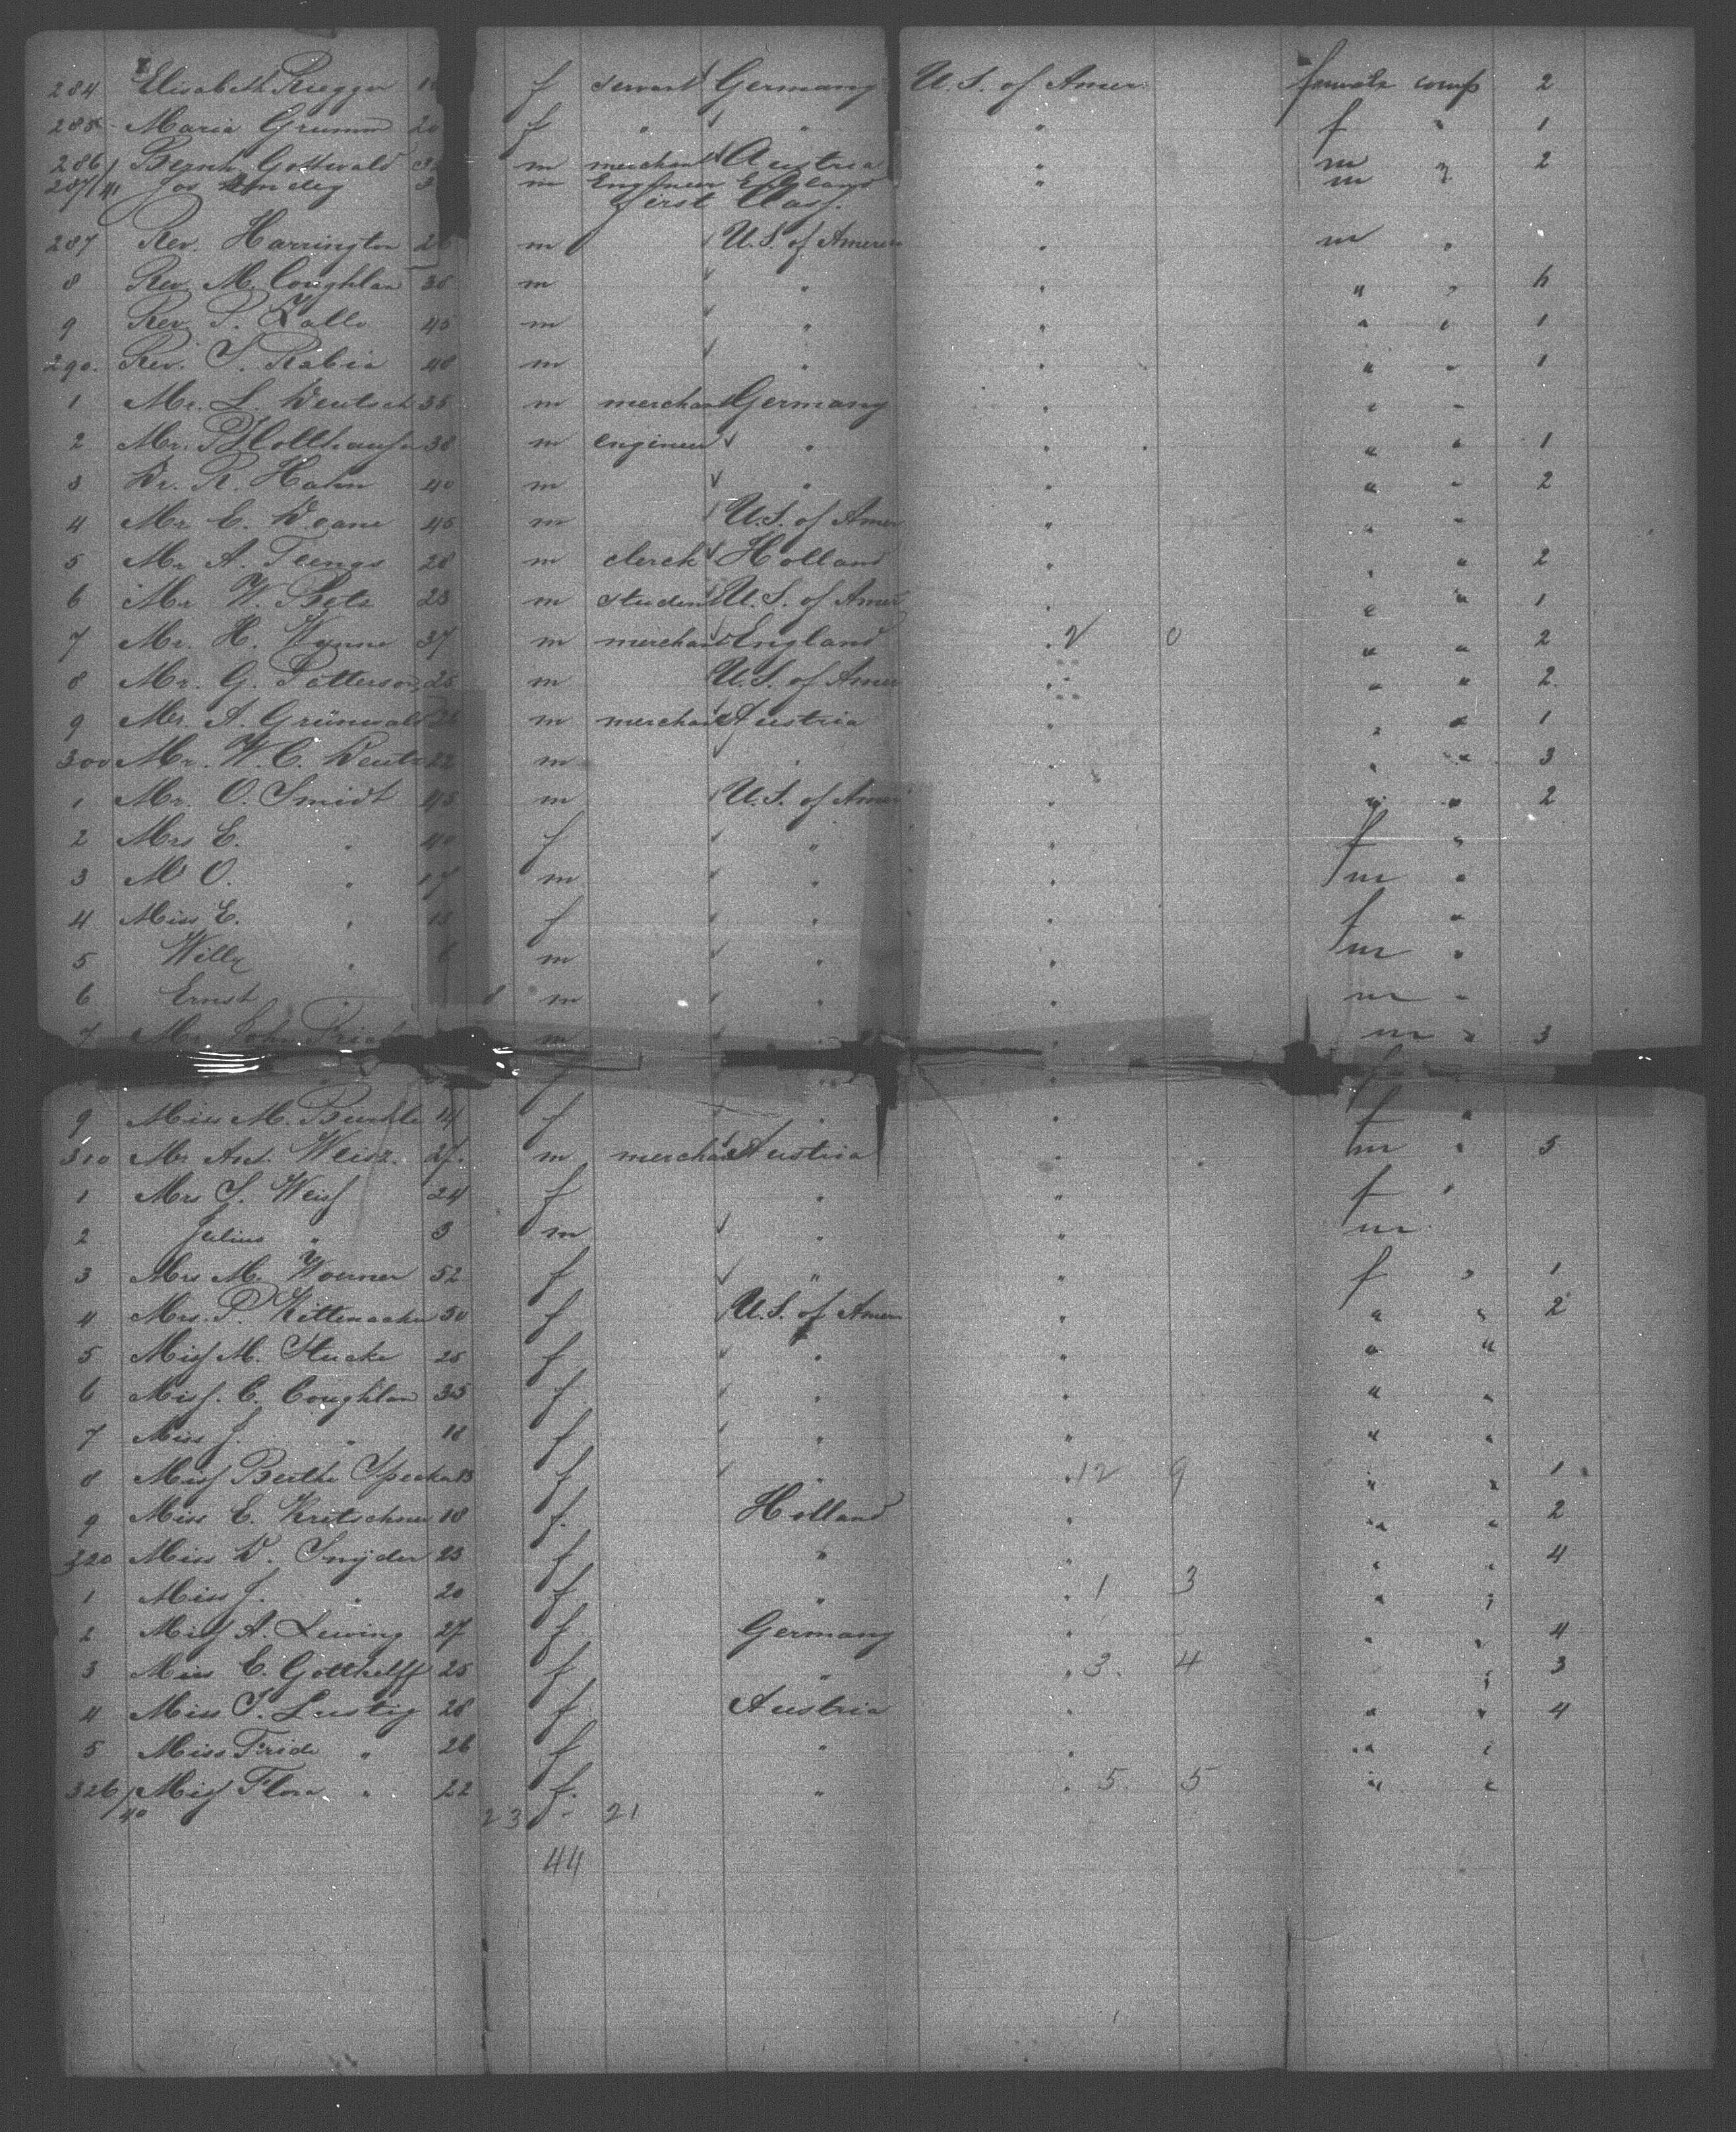 284 Elisabeth Ruegger f servant Germany U.S. of Amer. female comp 2
285 Maria Grumm 20 f " " " f " 1
286 Bernh. Gottwald m merchant Austria " m " 2
287/41 Jos m Engineer England " m "
first Class.
287 Rev. Harrington 26 m U.S. of America " m "
8 Rev. M. Coughlan 35 m " " " " h
9 Rev. S. 45 m " " " " 1
290. Rev. S. Rabia 48 m " " " " 1
1 Mr. L. Deutsch 35 m merchant Germany " " "
2 Mr. 38 m engineer " " " " 1
3 Dr. R. Hahn 40 m " " " " 2
4 Mr E. Doane 45 m U.S. of Amer " " "
5 Mr A. Teengs 28 m clerck Holland " " 2
6 Mr W. Betz 23 m student U.S. of Amer " " " 1
7 Mr. H. Wynne 37 m merchant England " 2 0 " " 2
8 Mr. G. Patterson 25 m U.S. of Amer " " " 2
9 Mr. A. Grünwald m merchant Austria " " " 1
300 Mr. W. C. 22 m " " " " 3
1 Mr. O. Smidt 45 m U.S. of Amer " " " 2
2 Mrs E. " 40 f " " f "
3 M O. " 17 m " " m "
4 Miss E. " f " " f "
5 Willy " 6 m " " m "
6 Ernst " 8 m " " m "
7 Mr. John m " " m " 3
9 Miss M. f " " f "
310 Mr Ant. Weisz. 27. m merchant Austria " m " 5
1 Mrs S. Weiss 24 f " " f "
2 Julius " 3 m " " m
3 Mrs M. Wouner 52 f " " f " 1
4 Mrs. P. 50 f U.S. of Amer " " " 2
5 Miss M. Stucke 25 f " " " "
6 Miss. C. Coughlan 35 f " " " "
7 Miss J. " 18 f " " " "
8 Miss Berthe f " " 12 9 " " 1
9 Miss E. Kretschmer 18 f. Holland " " " 2
320 Miss D. Snijder 23 f " " " " 4
1 Miss J. " 20 f " " 1 3 " "
2 Miss A. Lewing 27 f Germany " " " 4
3 Miss E. Gotthelff 25 f " " 3. 4 " 3
4 Miss J. Lustig 28 f Austria " " " 4
5 Miss Fride " 26 f " " " "
326/40 Miss Flora " 22 f. " " 5 5 " "
23 - 21
44